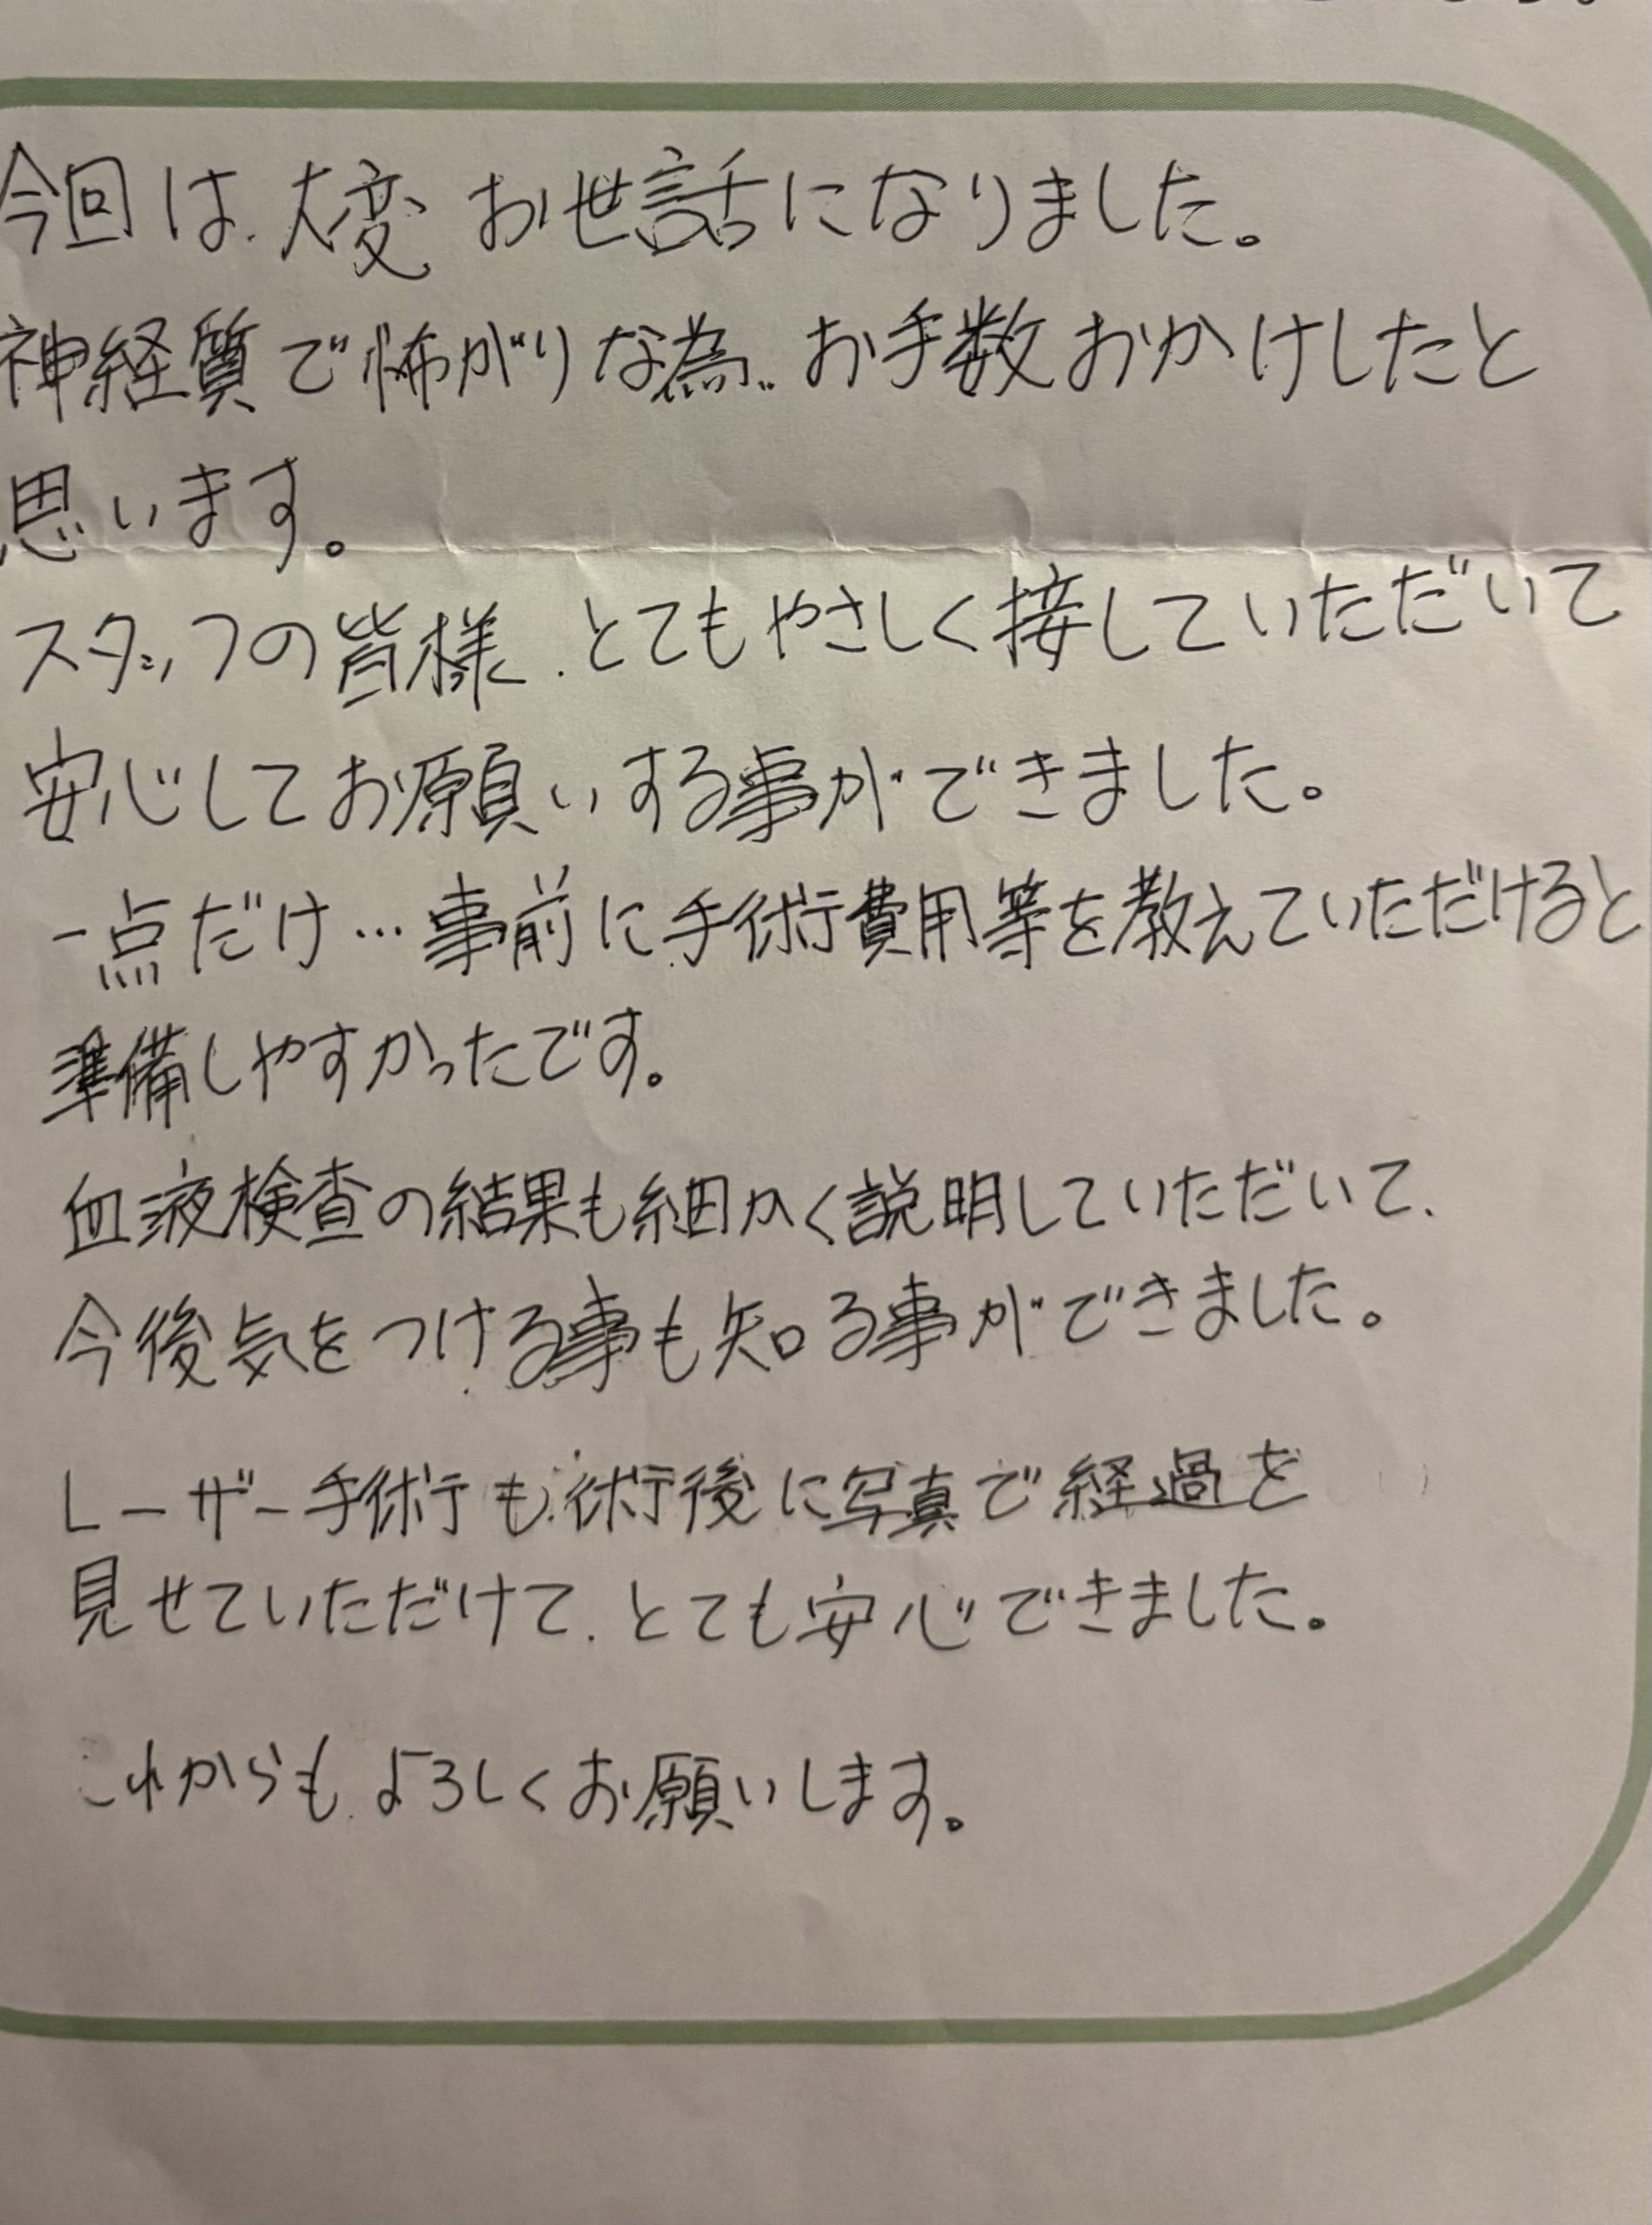 今回は、大変お世話になりました。
神経質で怖がりな為、お手数おかけしたと
思います。
スタッフの皆様、とてもやさしく接していただいて
安心してお願いする事ができました。
一点だけ…事前に手術費用等を教えていただけると
準備しやすかったです。
血液検査の結果も細かく説明していただいて、
今後気をつける事も知る事ができました。
レーザー手術も、術後に写真で経過を
見せていただけて、とても安心できました。
これからも、よろしくお願いします。